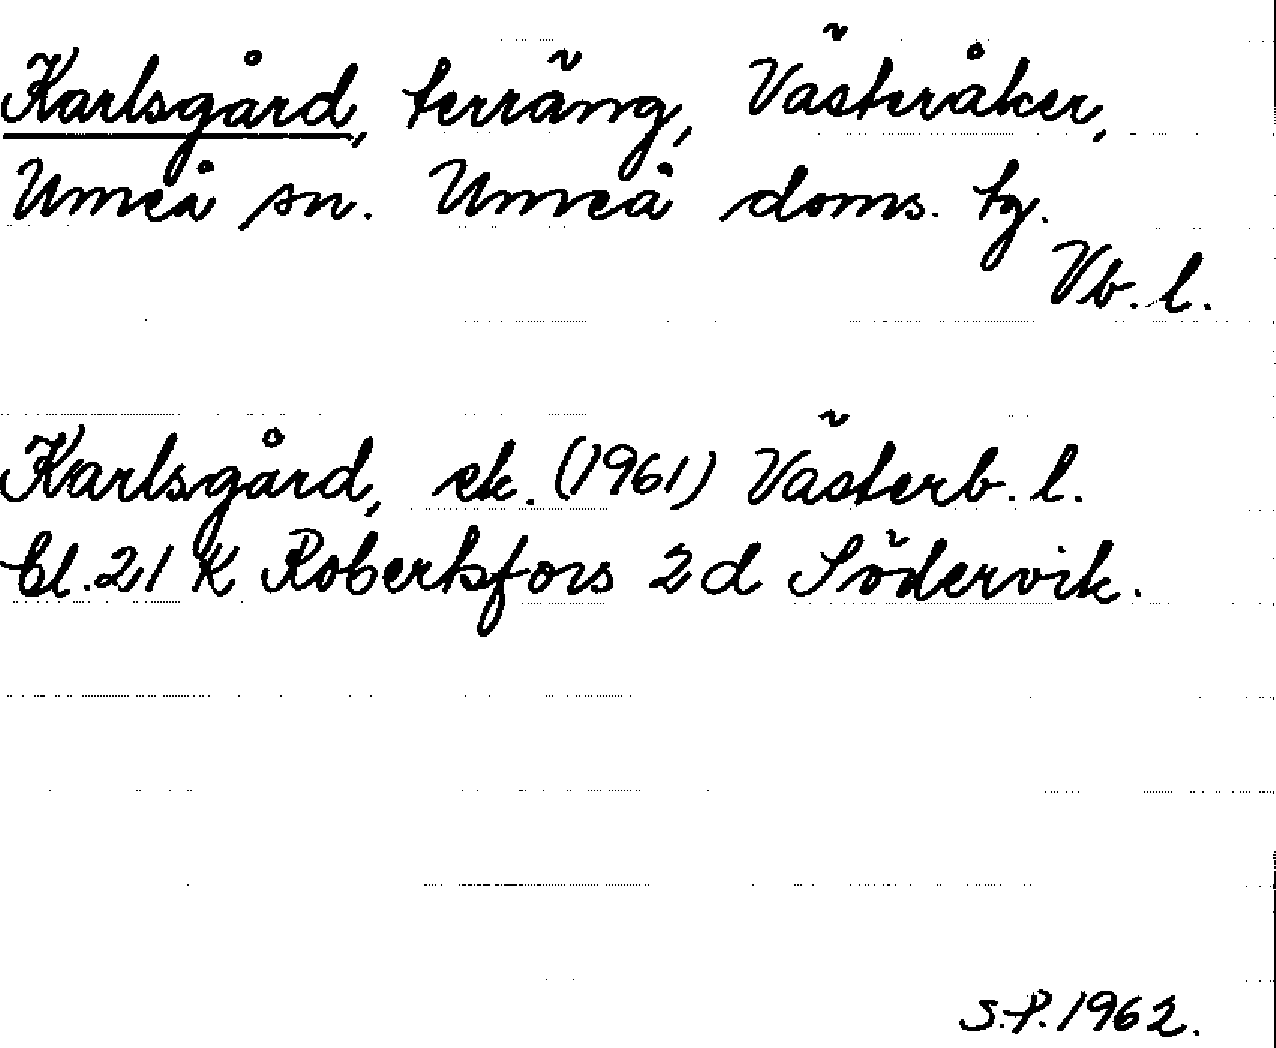 Karlsgård, terräng, Västeråker,
Umeå sn. Umeå doms. tg.
Vb. l.
Karlsgård, ek. (1961) Västerb. l.
bl. 21 K Robertsfors 2 d Södervik.
S.P. 1962.